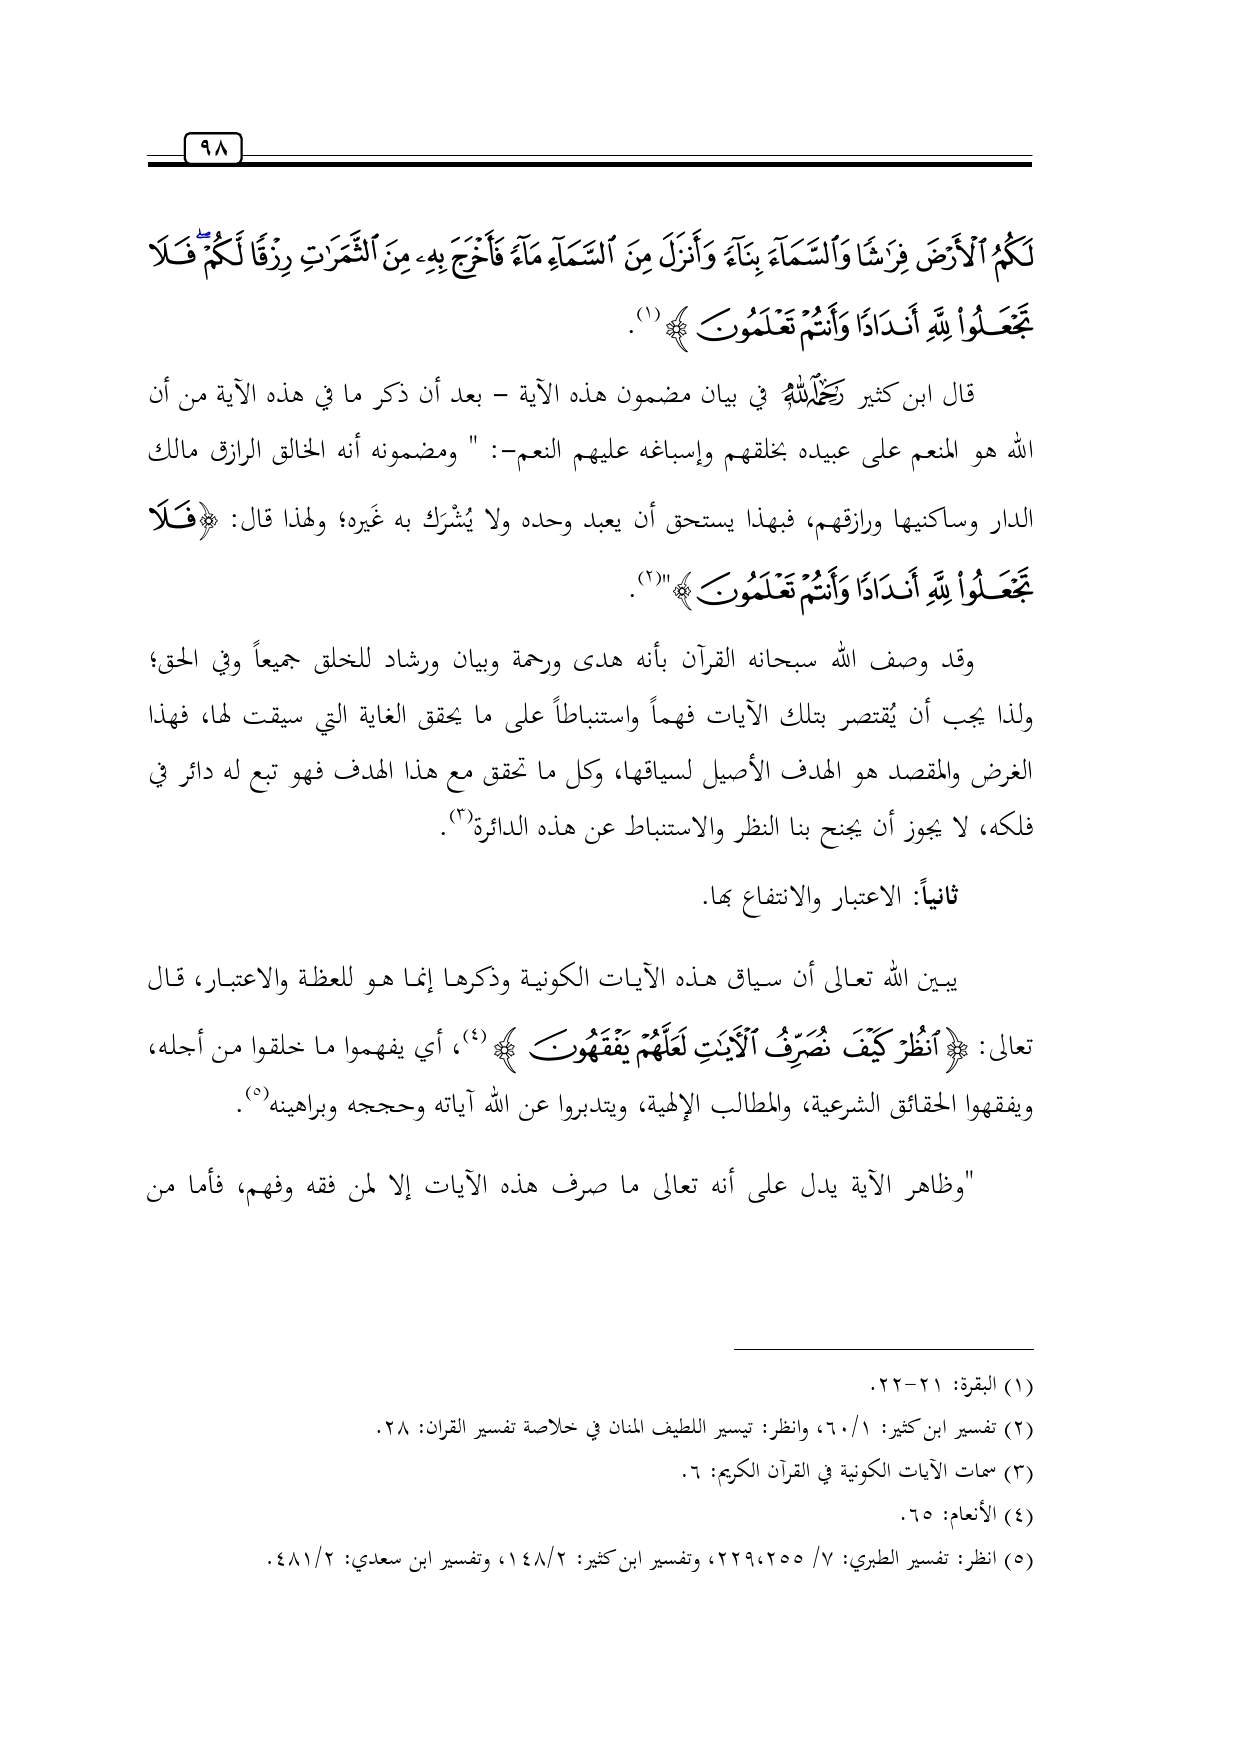 ٩٨
لَكُمُ ٱلْأَرْضَ فِرَٰشًا وَٱلسَّمَآءَ بِنَآءً وَأَنزَلَ مِنَ ٱلسَّمَآءِ مَآءً فَأَخْرَجَ بِهِۦ مِنَ ٱلثَّمَرَٰتِ رِزْقًا لَّكُمْ ۖ فَلَا
تَجْعَلُوا۟ لِلَّهِ أَندَادًا وَأَنتُمْ تَعْلَمُونَ ﴾(١).
قال ابن كثير رَحِمَهُ ٱللَّهُ في بيان مضمون هذه الآية – بعد أن ذكر ما في هذه الآية من أن
الله هو المنعم على عبيده بخلقهم وإسباغه عليهم النعم–: " ومضمونه أنه الخالق الرازق مالك
الدار وساكنيها ورازقهم، فبهذا يستحق أن يعبد وحده ولا يُشْرَك به غَيره؛ ولهذا قال: ﴿فَلَا
تَجْعَلُوا۟ لِلَّهِ أَندَادًا وَأَنتُمْ تَعْلَمُونَ﴾"(٢).
وقد وصف الله سبحانه القرآن بأنه هدى ورحمة وبيان ورشاد للخلق جميعاً وفي الحق؛
ولذا يجب أن يُقتصر بتلك الآيات فهماً واستنباطاً على ما يحقق الغاية التي سيقت لها، فهذا
الغرض والمقصد هو الهدف الأصيل لسياقها، وكل ما تحقق مع هذا الهدف فهو تبع له دائر في
فلكه، لا يجوز أن يجنح بنا النظر والاستنباط عن هذه الدائرة(٣).
ثانياً: الاعتبار والانتفاع بها.
يبين الله تعالى أن سياق هذه الآيات الكونية وذكرها إنما هو للعظة والاعتبار، قال
تعالى: ﴿ٱنظُرْ كَيْفَ نُصَرِّفُ ٱلْـَٔايَٰتِ لَعَلَّهُمْ يَفْقَهُونَ ﴾(٤)، أي يفهموا ما خلقوا من أجله،
ويفقهوا الحقائق الشرعية، والمطالب الإلهية، ويتدبروا عن الله آياته وحججه وبراهينه(٥).
"وظاهر الآية يدل على أنه تعالى ما صرف هذه الآيات إلا لمن فقه وفهم، فأما من
(١) البقرة: ٢١–٢٢.
(٢) تفسير ابن كثير: ٦٠/١، وانظر: تيسير اللطيف المنان في خلاصة تفسير القران: ٢٨.
(٣) سمات الآيات الكونية في القرآن الكريم: ٦.
(٤) الأنعام: ٦٥.
(٥) انظر: تفسير الطبري: ٧/ ٢٢٩،٢٥٥، وتفسير ابن كثير: ١٤٨/٢، وتفسير ابن سعدي: ٤٨١/٢.